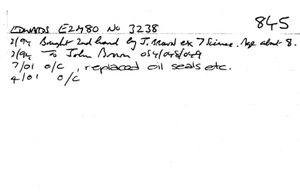 845
EDWARDS E2M80 No 3238
2/94 Bought 2nd hand by J. ex 7 Science. Age about 8.
2/94 To John Brown 054/048/049
7/01 O/C, replaced oil seals etc.
4/01 O/C